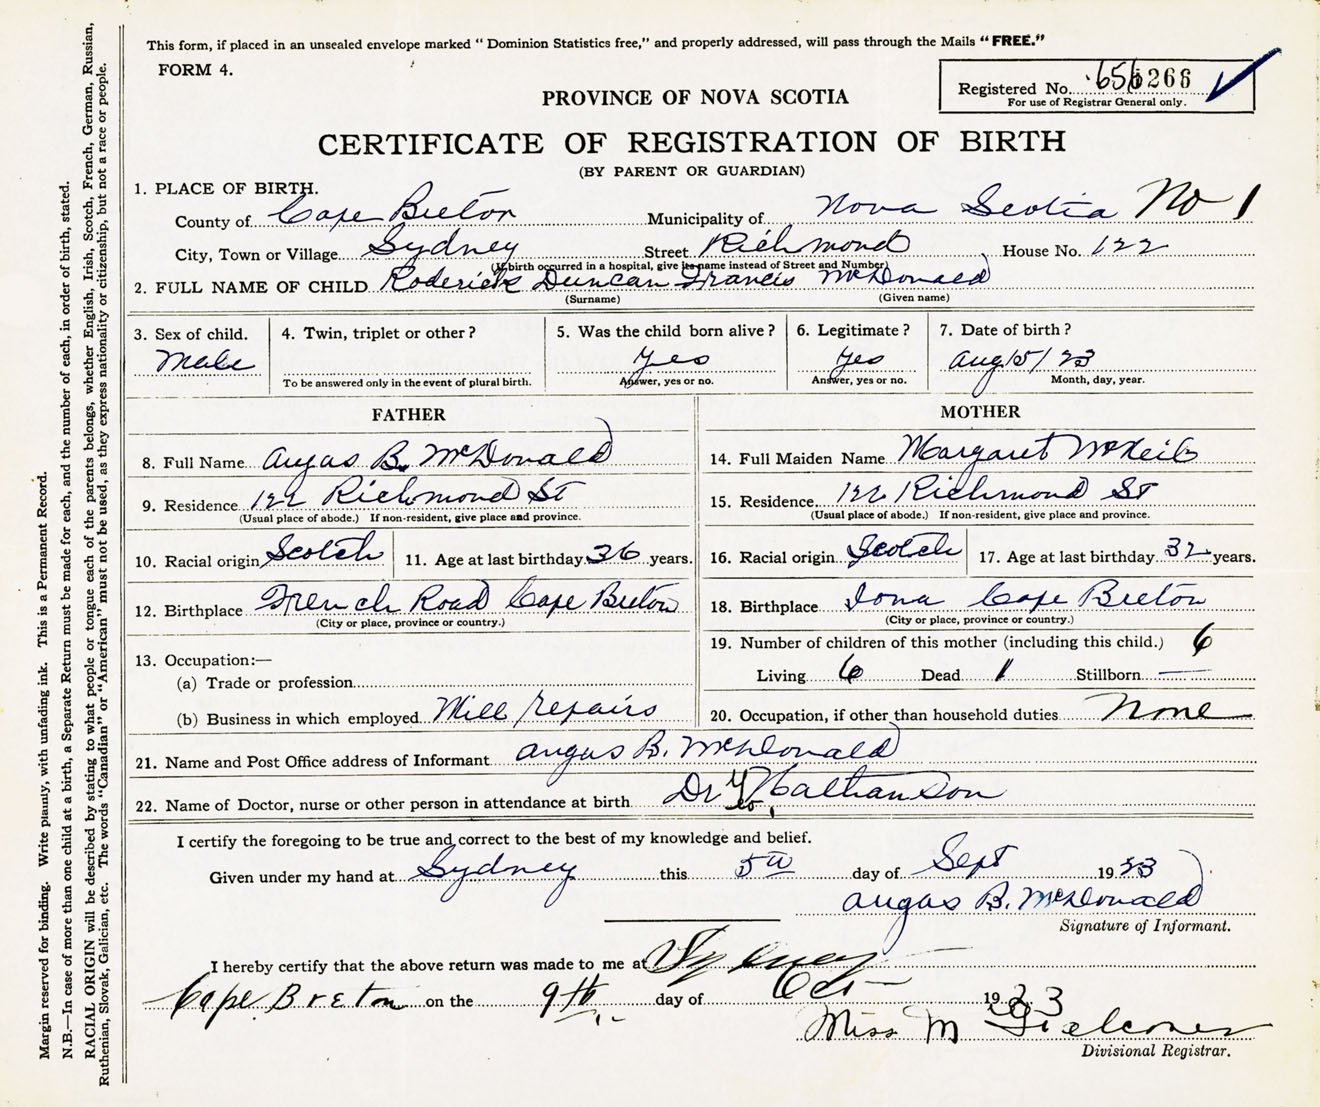 This form, if placed in an unsealed envelope marked "Dominion Statistics free," and properly addressed, will pass through the Mails "FREE."
FORM 4.
Registered No. 266
For use of Registrar General only.
PROVINCE OF NOVA SCOTIA
CERTIFICATE OF REGISTRATION OF BIRTH
(BY PARENT OR GUARDIAN)
1. PLACE OF BIRTH.
County of Cape Breton Municipality of Nova Scotia No 1
City, Town or Village Sydney Street Richmond House No. 122
(If birth occurred in a hospital, give its name instead of Street and Number)
2. FULL NAME OF CHILD Roderick Duncan Francis McDonald
(Surname) (Given name)
3. Sex of child. 4. Twin, triplet or other? 5. Was the child born alive? 6. Legitimate? 7. Date of birth?
Male Yes Yes Aug/5/23
To be answered only in the event of plural birth. Answer, yes or no. Answer, yes or no. Month, day, year.
FATHER MOTHER
8. Full Name Angas B. McDonald 14. Full Maiden Name Margaret McNeil
9. Residence 122 Richmond St 15. Residence 122 Richmond St
(Usual place of abode.) If non-resident, give place and province. (Usual place of abode.) If non-resident, give place and province.
10. Racial origin Scotch 11. Age at last birthday 36 years. 16. Racial origin Scotch 17. Age at last birthday 32 years.
12. Birthplace French Road Cape Breton 18. Birthplace Iona Cape Breton
(City or place, province or country.) (City or place, province or country.)
13. Occupation:— 19. Number of children of this mother (including this child.) 6
(a) Trade or profession Living 6 Dead 1 Stillborn —
(b) Business in which employed Mill repairs 20. Occupation, if other than household duties None
21. Name and Post Office address of Informant Angus B. McDonald
22. Name of Doctor, nurse or other person in attendance at birth Dr
I certify the foregoing to be true and correct to the best of my knowledge and belief.
Given under my hand at Sydney this 5th day of Sept 1923
Angas B. McDonald
Signature of Informant.
I hereby certify that the above return was made to me at Sydney
Cape Breton on the 9th day of Oct 1923
Miss M
Divisional Registrar.
Margin reserved for binding. Write plainly, with unfading ink. This is a Permanent Record.
N.B.—In case of more than one child at a birth, a Separate Return must be made for each, and the number of each, in order of birth, stated.
RACIAL ORIGIN will be described by stating to what people or tongue each of the parents belongs, whether English, Irish, Scotch, French, German, Russian,
Ruthenian, Slovak, Galician, etc. The words "Canadian" or "American" must not be used, as they express nationality or citizenship, but not a race or people.